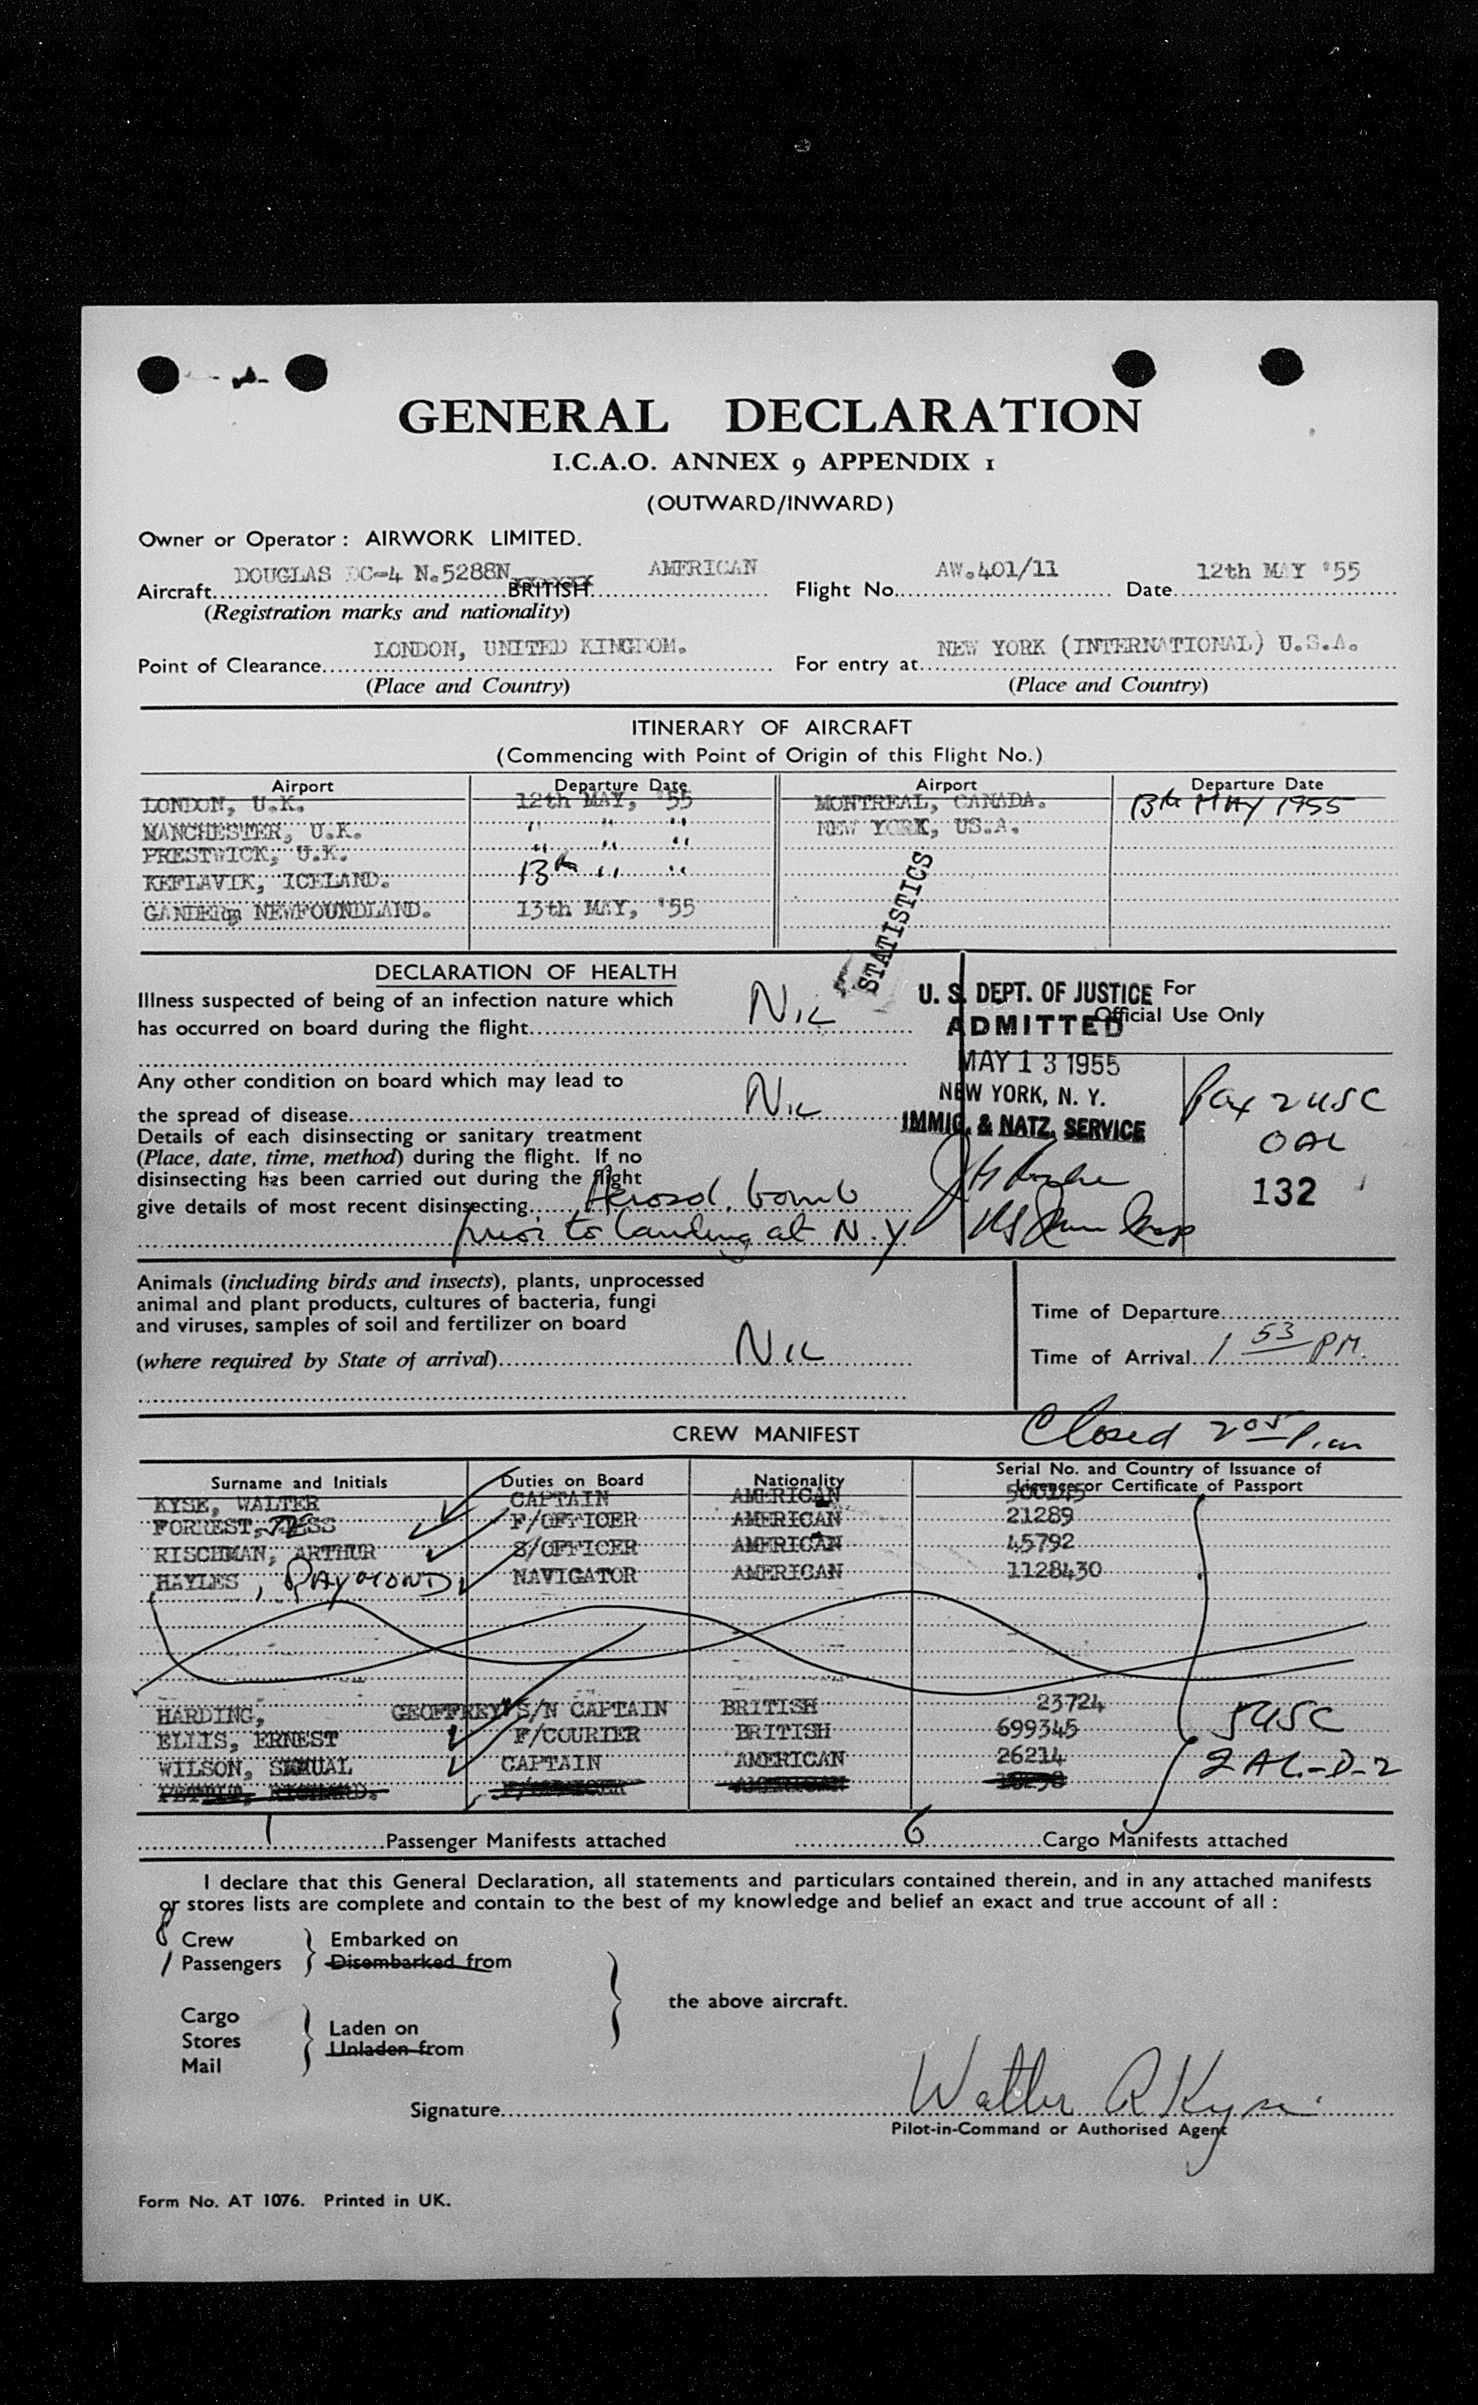 GENERAL DECLARATION
I.C.A.O. ANNEX 9 APPENDIX 1
(OUTWARD/INWARD)
Owner or Operator : AIRWORK LIMITED.
Aircraft DOUGLAS DC-4 N.5288N BRITISH AMERICAN Flight No. AW.401/11 Date 12th MAY '55
(Registration marks and nationality)
Point of Clearance LONDON, UNITED KINGDOM. For entry at NEW YORK (INTERNATIONAL) U.S.A.
(Place and Country) (Place and Country)
ITINERARY OF AIRCRAFT
(Commencing with Point of Origin of this Flight No.)
Airport Departure Date Airport Departure Date
LONDON, U.K. 12th MAY, '55 MONTREAL, CANADA. 13th MAY 1955
MANCHESTER, U.K. " " " NEW YORK, US.A.
PRESTWICK, U.K. " " "
KEFLAVIK, ICELAND. 13th " "
GANDER, NEWFOUNDLAND. 13th MAY, '55
STATISTICS
DECLARATION OF HEALTH
Illness suspected of being of an infection nature which
has occurred on board during the flight Nil
For Official Use Only
U. S. DEPT. OF JUSTICE
ADMITTED
MAY 13 1955
NEW YORK, N. Y.
IMMIG. & NATZ. SERVICE
Pax 2 USC
0 AL
132
Any other condition on board which may lead to
the spread of disease Nil
Details of each disinsecting or sanitary treatment
(Place, date, time, method) during the flight. If no
disinsecting has been carried out during the flight
give details of most recent disinsecting Aerosol bomb
prior to landing at N.Y
Animals (including birds and insects), plants, unprocessed
animal and plant products, cultures of bacteria, fungi
and viruses, samples of soil and fertilizer on board
(where required by State of arrival) Nil
Time of Departure
Time of Arrival 1 53 PM.
Closed 2 05 P.m
CREW MANIFEST
Surname and Initials Duties on Board Nationality Serial No. and Country of Issuance of
License or Certificate of Passport
KYSE, WALTER CAPTAIN AMERICAN
FORREST, JESS F/OFFICER AMERICAN 21289
RISCHMAN, ARTHUR S/OFFICER AMERICAN 45792
HAYLES, RAYMOND NAVIGATOR AMERICAN 1128430
HARDING, GEOFFREY S/N CAPTAIN BRITISH 23724
ELLIS, ERNEST F/COURIER BRITISH 699345
WILSON, SAMUAL CAPTAIN AMERICAN 26214
5 USC
2 AL-D-2
1 Passenger Manifests attached 6 Cargo Manifests attached
I declare that this General Declaration, all statements and particulars contained therein, and in any attached manifests
or stores lists are complete and contain to the best of my knowledge and belief an exact and true account of all :
Crew Embarked on
1 Passengers Disembarked from
the above aircraft.
Cargo
Stores Laden on
Mail Unladen from
Signature Walter R Kyse
Pilot-in-Command or Authorised Agent
Form No. AT 1076. Printed in UK.